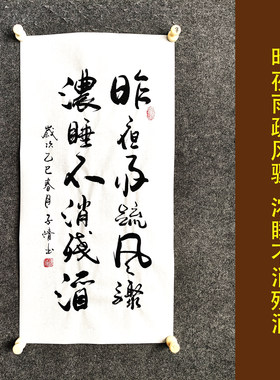 昨夜雨疏风骤
浓睡不消残酒
岁次乙巳春月子清书
昨夜雨疏风骤 浓睡不消残酒